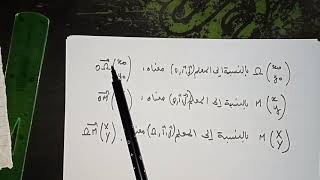 Ω(x₀ y₀) بالنسبة إلى المعلم (O, i⃗, j⃗) معناه: OΩ⃗(x₀ y₀)
M(x y) بالنسبة إلى المعلم (O, i⃗, j⃗) معناه: OM⃗
M(X Y) بالنسبة إلى المعلم (Ω, i⃗, j⃗) معناه: ΩM⃗(X Y)